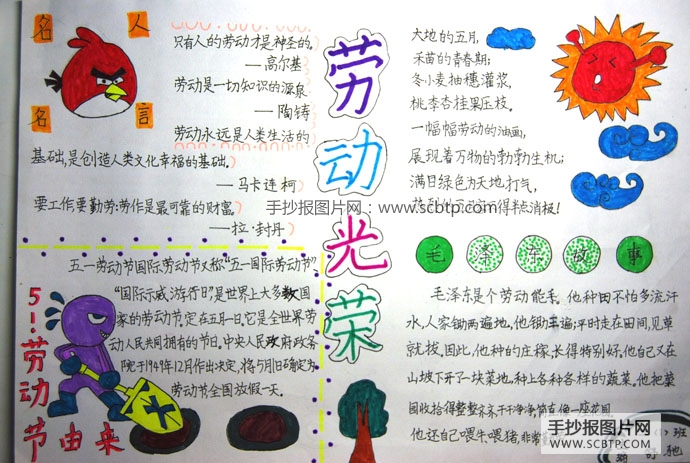 名人
名言
只有人的劳动才是神圣的。
—高尔基
劳动是一切知识的源泉
—陶铸
劳动永远是人类生活的
基础,是创造人类文化幸福的基础。
—马卡连柯
要工作要勤劳:劳作是最可靠的财富。
—拉·封丹
劳动光荣
大地的五月,
禾苗的青春期;
冬小麦抽穗灌浆,
桃李杏挂果压枝。
一幅幅劳动的油画,
展现着万物的勃勃生机;
满日绿色为天地打气,
得半点消极!
手抄报图片网:www.scbtp.com
5.1劳动节由来
五一劳动节国际劳动节又称"五一国际劳动节",
"国际示威游行日"是世界上大多数国
家的劳动节。定在五月一日。它是全世界劳
动人民共同拥有的节日。中央人民政府政务
院于1949年12月作出决定,将5月1日确定为
劳动节全国放假一天。
毛泽东故事
毛泽东是个劳动能手。他种田不怕多流汗
水,人家锄两遍地,他锄三遍;平时走在田间,见草
就拔。因此,他种的庄稼,长得特别好。他自己又在
山坡下开了一块菜地,种上各种各样的蔬菜。他把菜
园收拾得整整齐齐、干干净净,简直像一座花园
他还自己喂牛、喂猪,非常
班
手抄报图片网
WWW.SCBTP.COM
驰